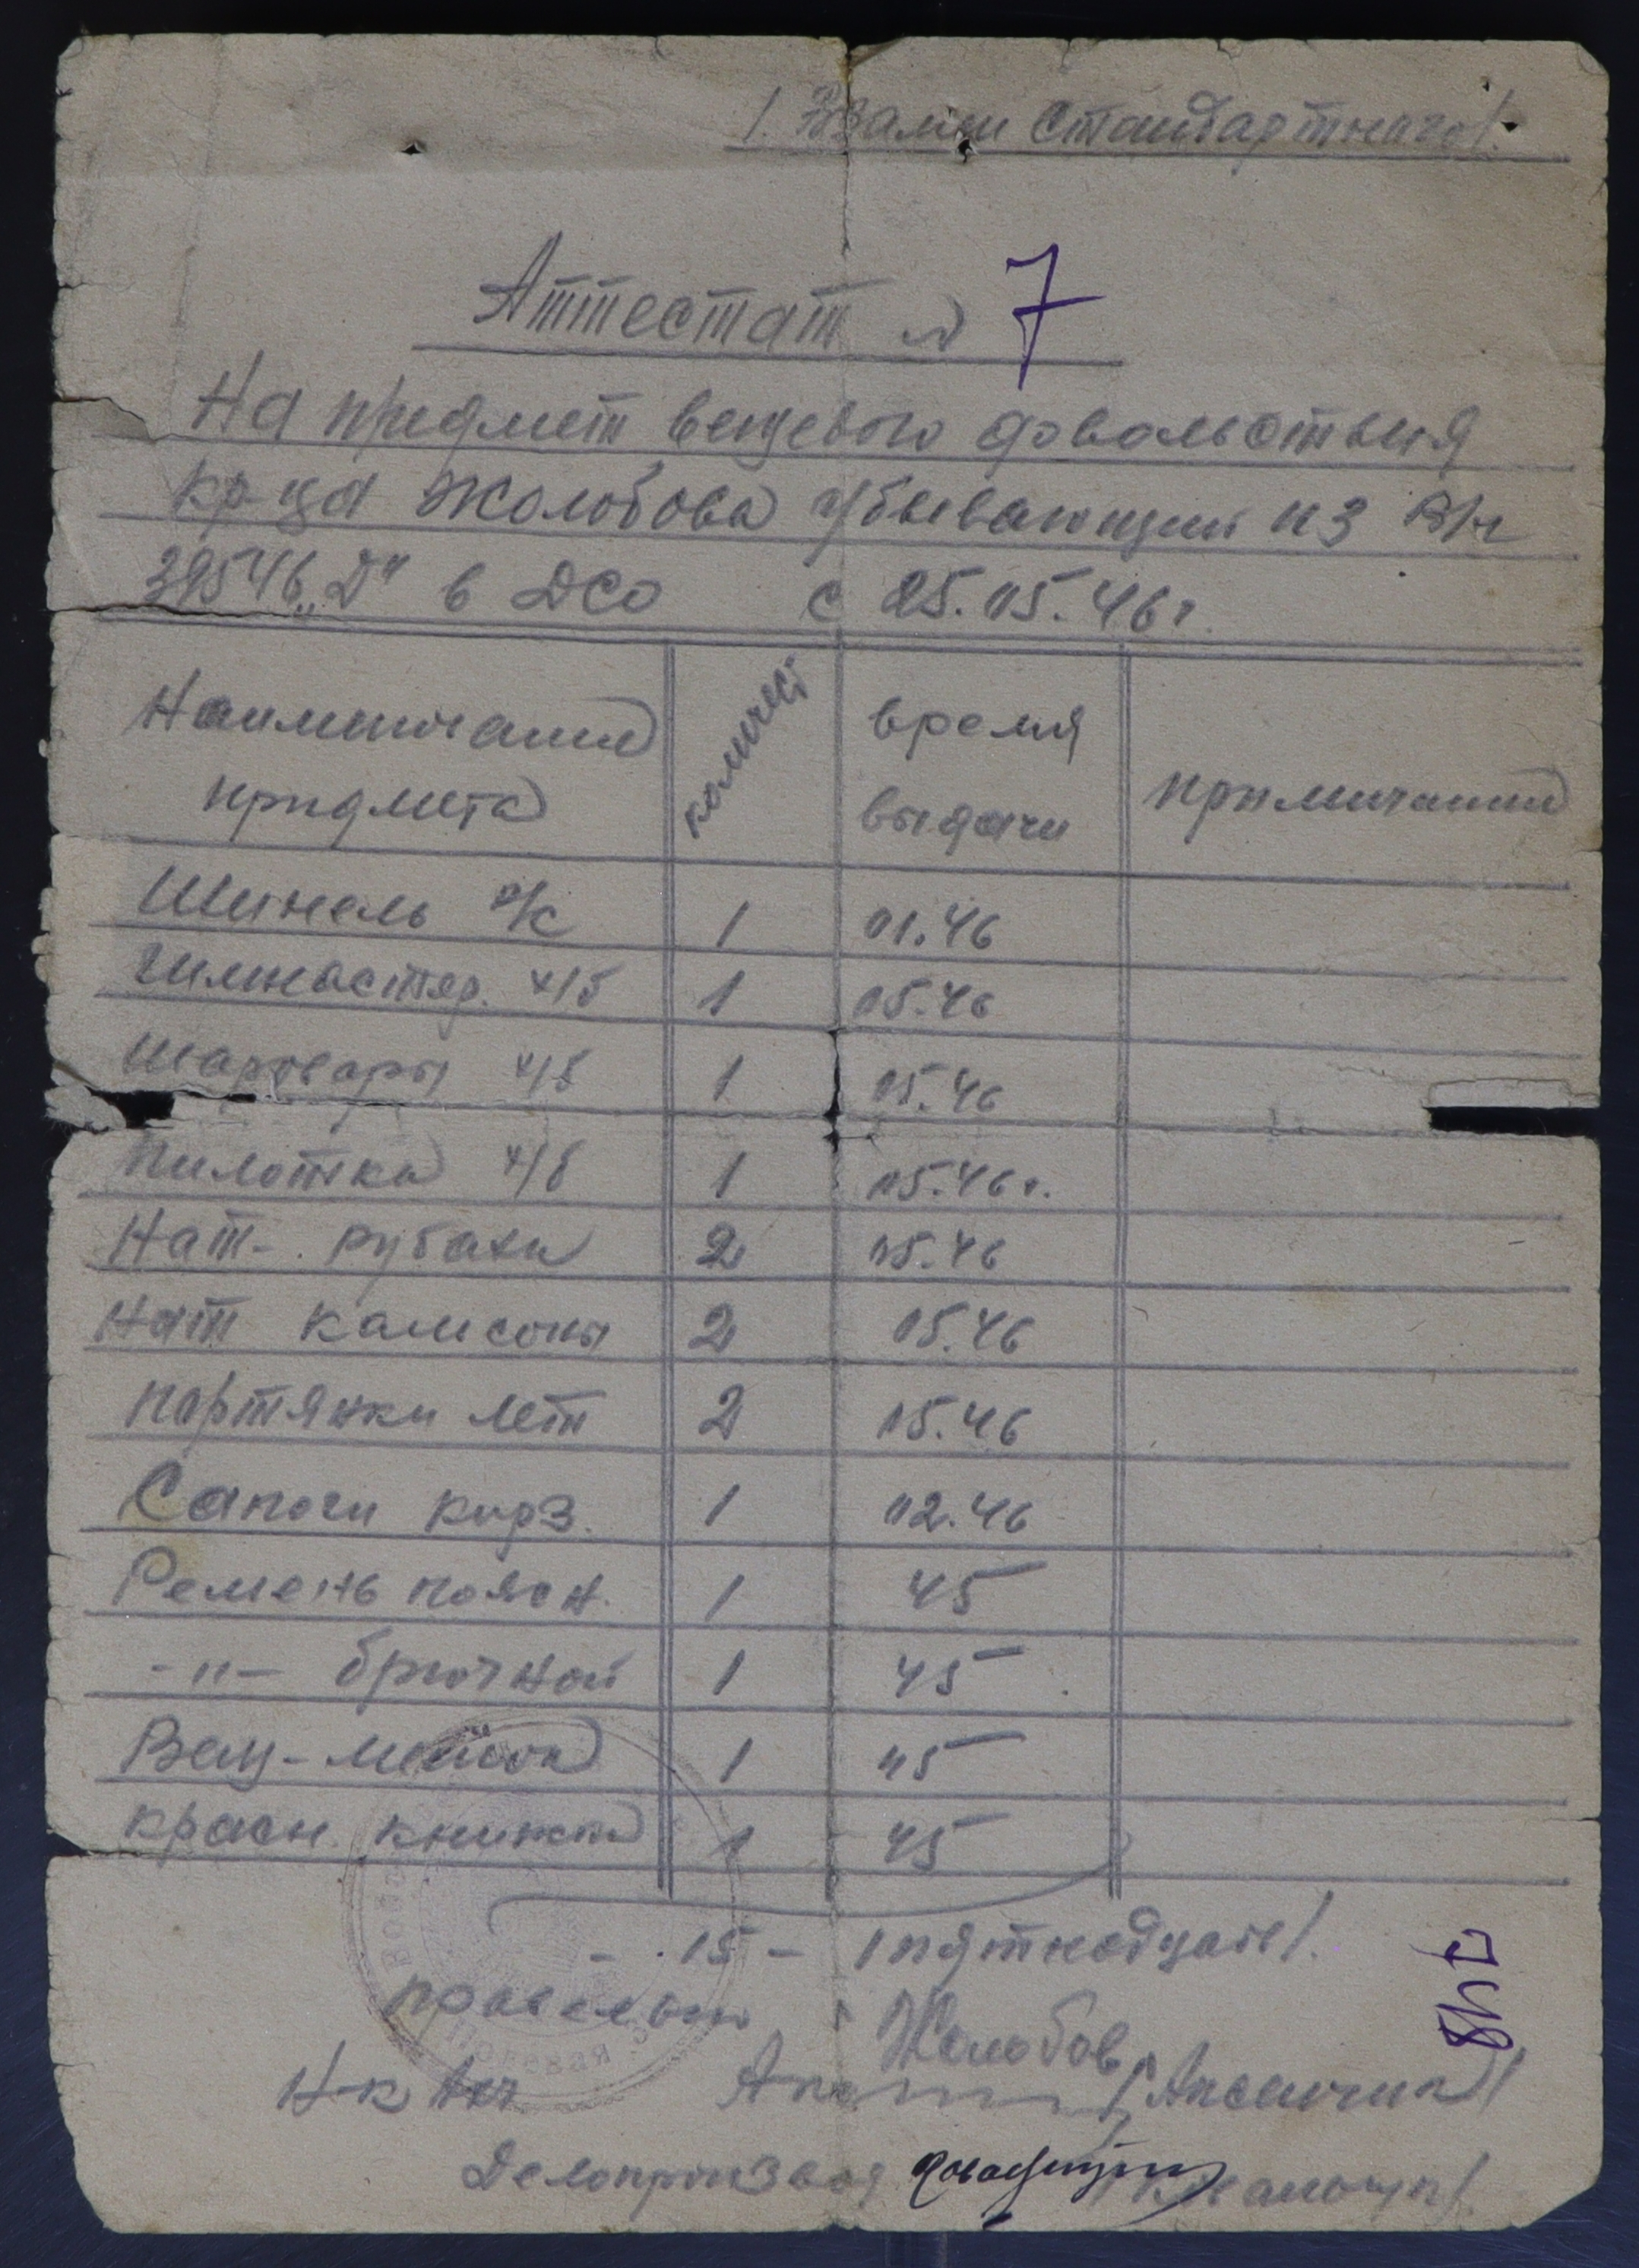 /. Взамен Стандартнаго/.
Аттестат № 7
На предмет вещевого довольствия
кр-ца Жолобова убывающий из В/ч
39546 „Д" в ДСО с 25.05.46 г.
Наименование предмета количест время выдачи примичание
Шинель с/с 1 01.46
Гимнастер. х/б 1 05.46
Шаровары х/б 1 05.46
Пилотка х/б 1 05.46 г.
Нат-. рубахи 2 05.46
Нат кальсоны 2 05.46
портянки лет 2 05.46
Сапоги кирз. 1 02.46
Ремень поясн. 1 45
-"- брючной 1 45
Вещ-мешок 1 45
красн. книжка 1 45
- 15 - /пятнадцать/.
правельно Жолобов
Н-к
Делопроизвод
748
полевая